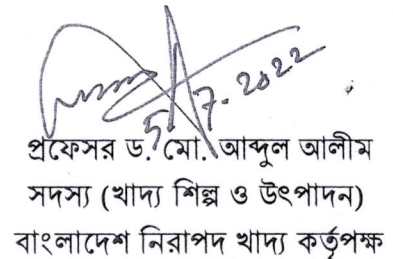 5.7.2022
প্রফেসর ড. মো. আব্দুল আলীম
সদস্য (খাদ্য শিল্প ও উৎপাদন)
বাংলাদেশ নিরাপদ খাদ্য কর্তৃপক্ষ